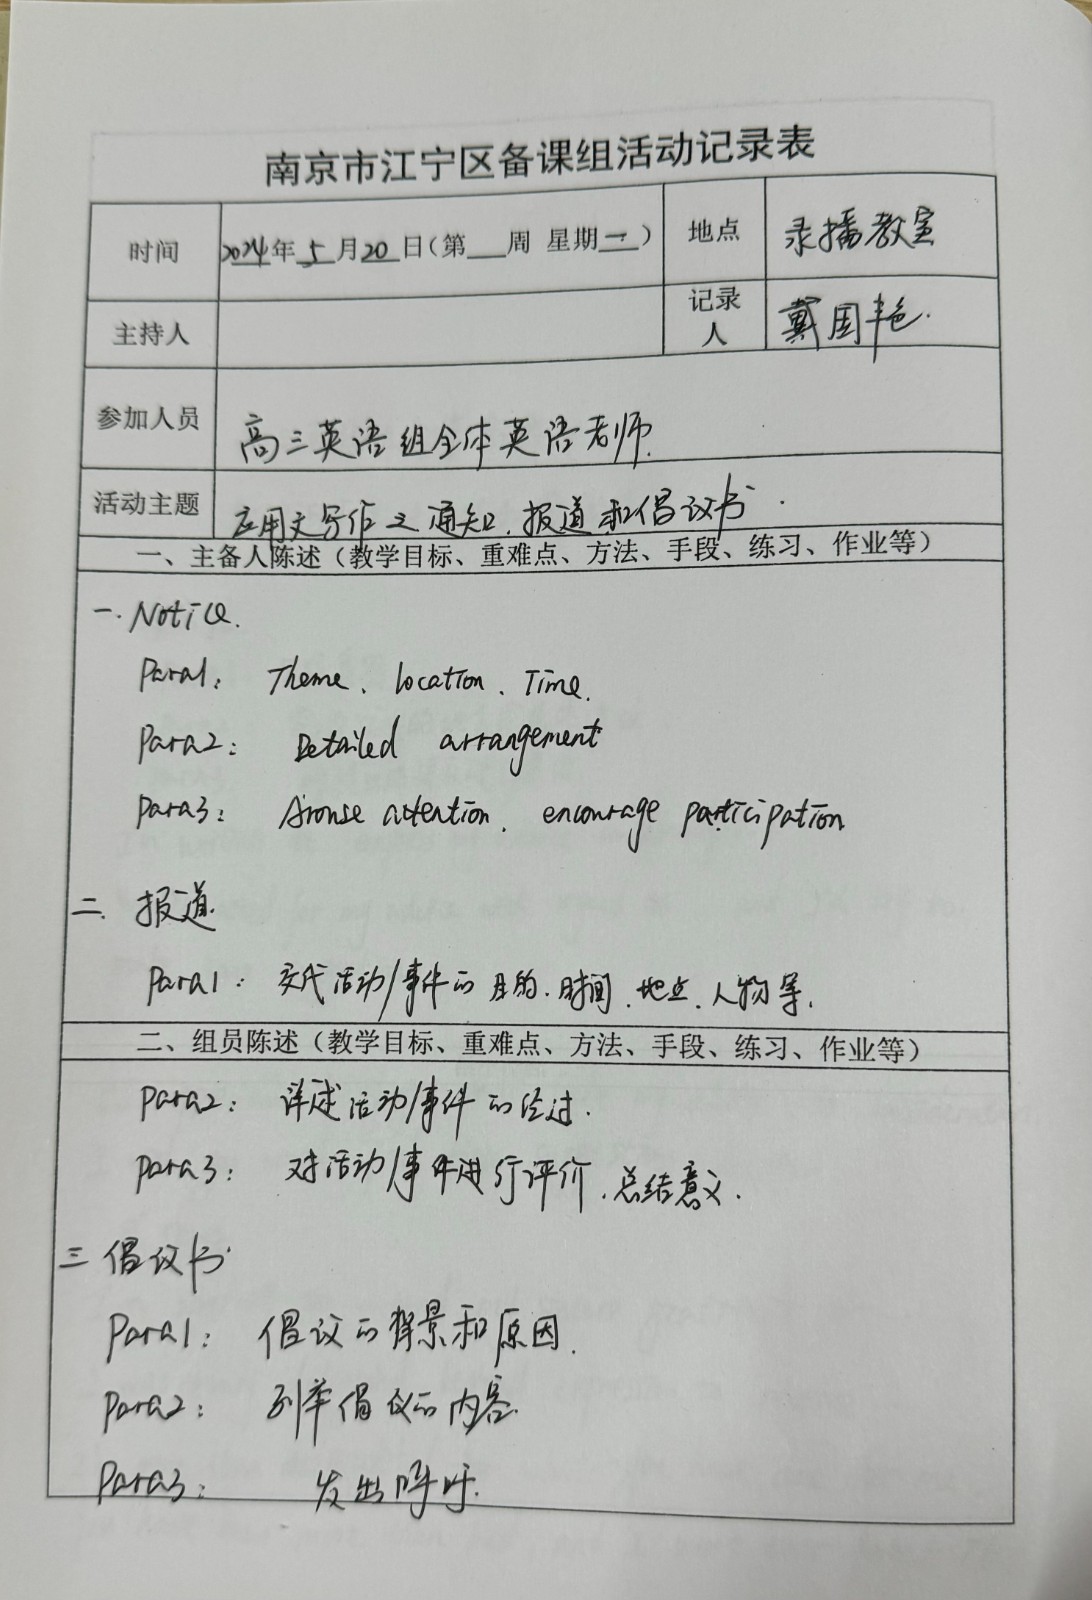 南京市江宁区备课组活动记录表
时间 2024年5月20日(第__周 星期一) 地点 录播教室
主持人 记录人 戴国艳
参加人员 高三英语组全体英语老师.
活动主题 应用文写作之通知、报道和倡议书.
一、主备人陈述(教学目标、重难点、方法、手段、练习、作业等)
一. Notice.
Para1: Theme、location、Time.
Para2: Detailed arrangement
Para3: Arouse attention、encourage participation
二. 报道
Para1: 交代活动/事件的目的、时间、地点、人物等.
二、组员陈述(教学目标、重难点、方法、手段、练习、作业等)
Para2: 详述活动/事件的经过.
Para3: 对活动/事件进行评价、总结意义.
三 倡议书
Para1: 倡议的背景和原因.
Para2: 列举倡议的内容.
Para3: 发出呼吁.